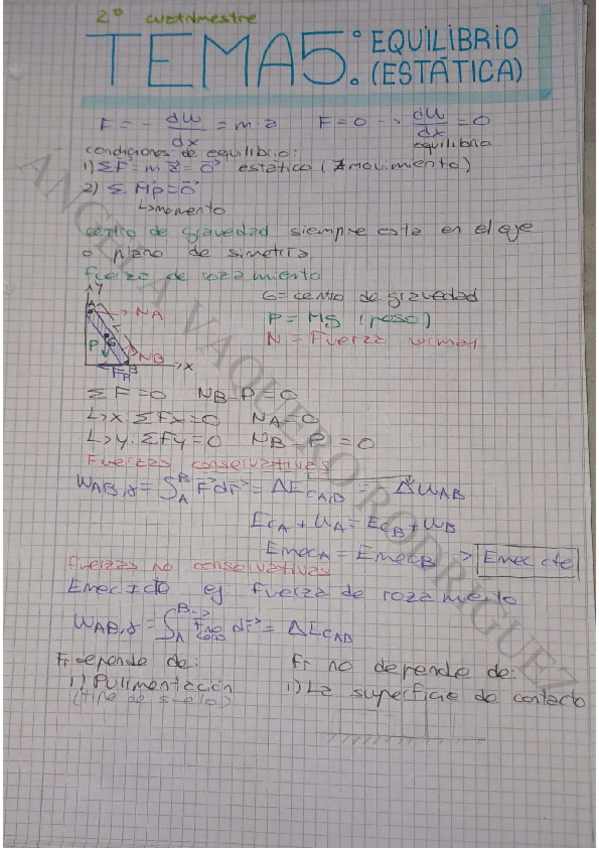 2º cuatrimestre
TEMA 5: EQUILIBRIO
(ESTÁTICA)
F = - dU/dx = m·a F = 0 -> dU/dx = 0
equilibrio
condiciones de equilibrio:
1) ΣF = m·a = 0 estático (∄ movimiento)
2) Σ Mp = 0
↳ momento
centro de gravedad siempre esta en el eje
o plano de simetría
fuerza de rozamiento
Y
A
NA
G = centro de gravedad
P = Mg (peso)
N = Fuerza normal
G
P
NB
B
x
FR
ΣF = 0 NB - P = 0
↳ x: ΣFx = 0 NA = 0
↳ y: ΣFy = 0 NB - P = 0
Fuerzas conservativas
WAB,γ = ∫ A B F dr = ΔEcAB = -ΔUAB
EcA + UA = EcB + UB
EmecA = EmecB -> Emec cte
fuerzas no conservativas
Emec ≠ cte ej: fuerza de rozamiento
WAB,γ = ∫ A B Fno cons dr = ΔEcAB
Fr depende de: Fr no depende de:
1) Pulimentación 1) La superficie de contacto
(tipo de suelo)
ÁNGELA VAQUERO RODRÍGUEZ